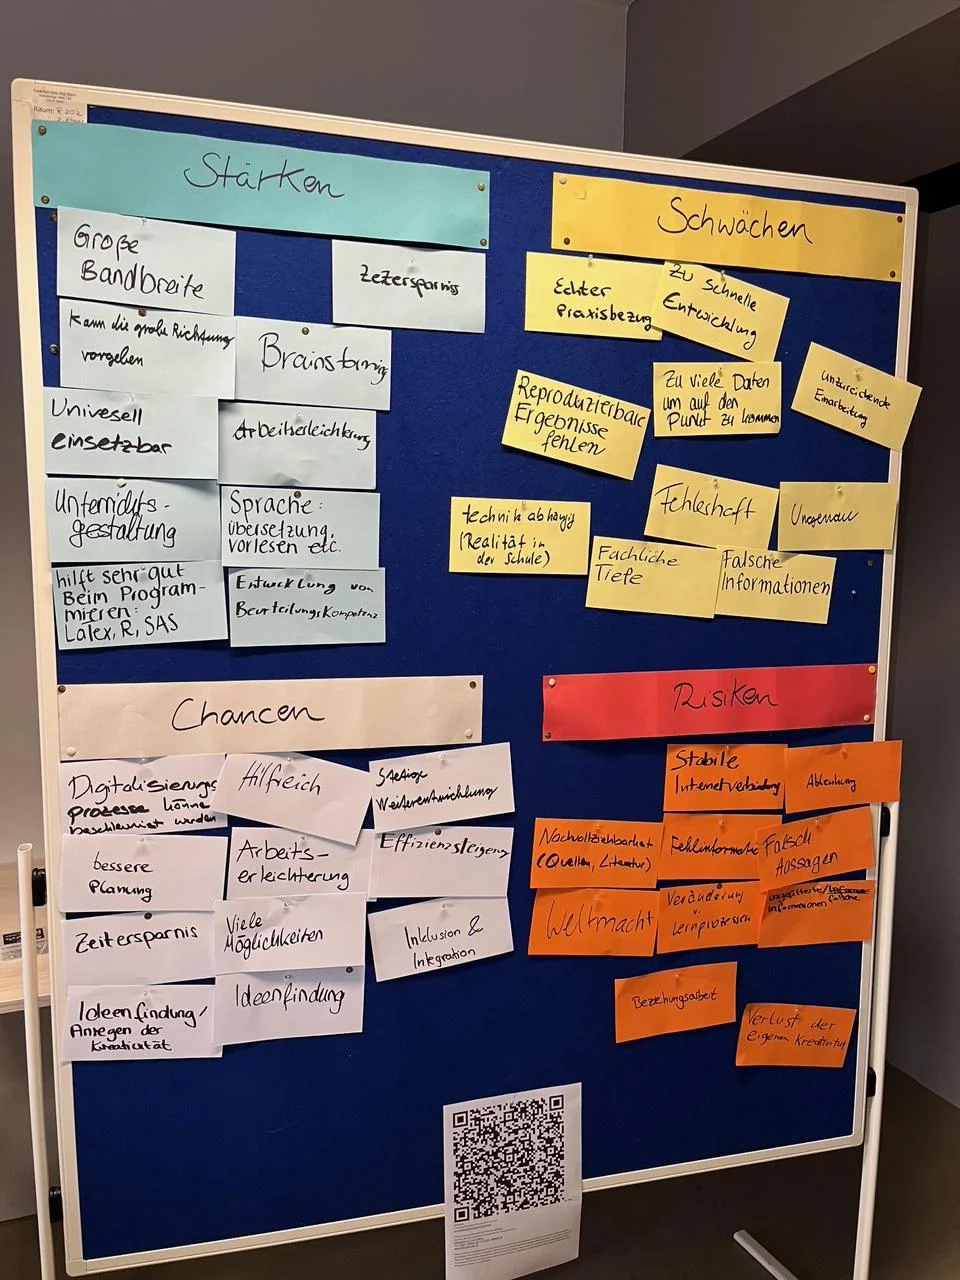 Raum: R 202
Stärken
Große
Bandbreite
Zeitersparniss
Kann die grobe Richtung
vorgeben
Brainstorming
Univesell
einsetzbar
Arbeitserleichterung
Unterrichts-
gestaltung
Sprache:
übersetzung,
vorlesen etc.
hilft sehr gut
Beim Program-
mieren:
Latex, R, SAS
Entwicklung von
Beurteilungskompetenz
Schwächen
Echter
Praxisbezug
Zu schnelle
Entwicklung
Reproduzierbare
Ergebnisse
fehlen
Zu viele Daten
um auf den
Punkt zu kommen
unzureichende
Einarbeitung
technik abhängig
(Realität in
der Schule)
Fehlerhaft
Ungenau
Fachliche
Tiefe
Falsche
Informationen
Chancen
Digitalisierungs
prozesse könne
beschleunigt werden
Hilfreich
Stetige
Weiterentwicklung
bessere
Planung
Arbeits-
erleichterung
Effizienzsteigerung
Zeitersparnis
Viele
Möglichkeiten
Inklusion &
Integration
Ideenfindung/
Anregen der
Kreativität
Ideenfindung
Risiken
Stabile
Internetverbindung
Ablenkung
Nachvollziehbarkeit
(Quellen, Literatur)
Fehlinformatio
Falsch
Aussagen
Weltmacht
Veränderung
v.
Lernprozessen
ungefilterte/
Informationen falsche
Beziehungsarbeit
Verlust der
eigenen Kreativität